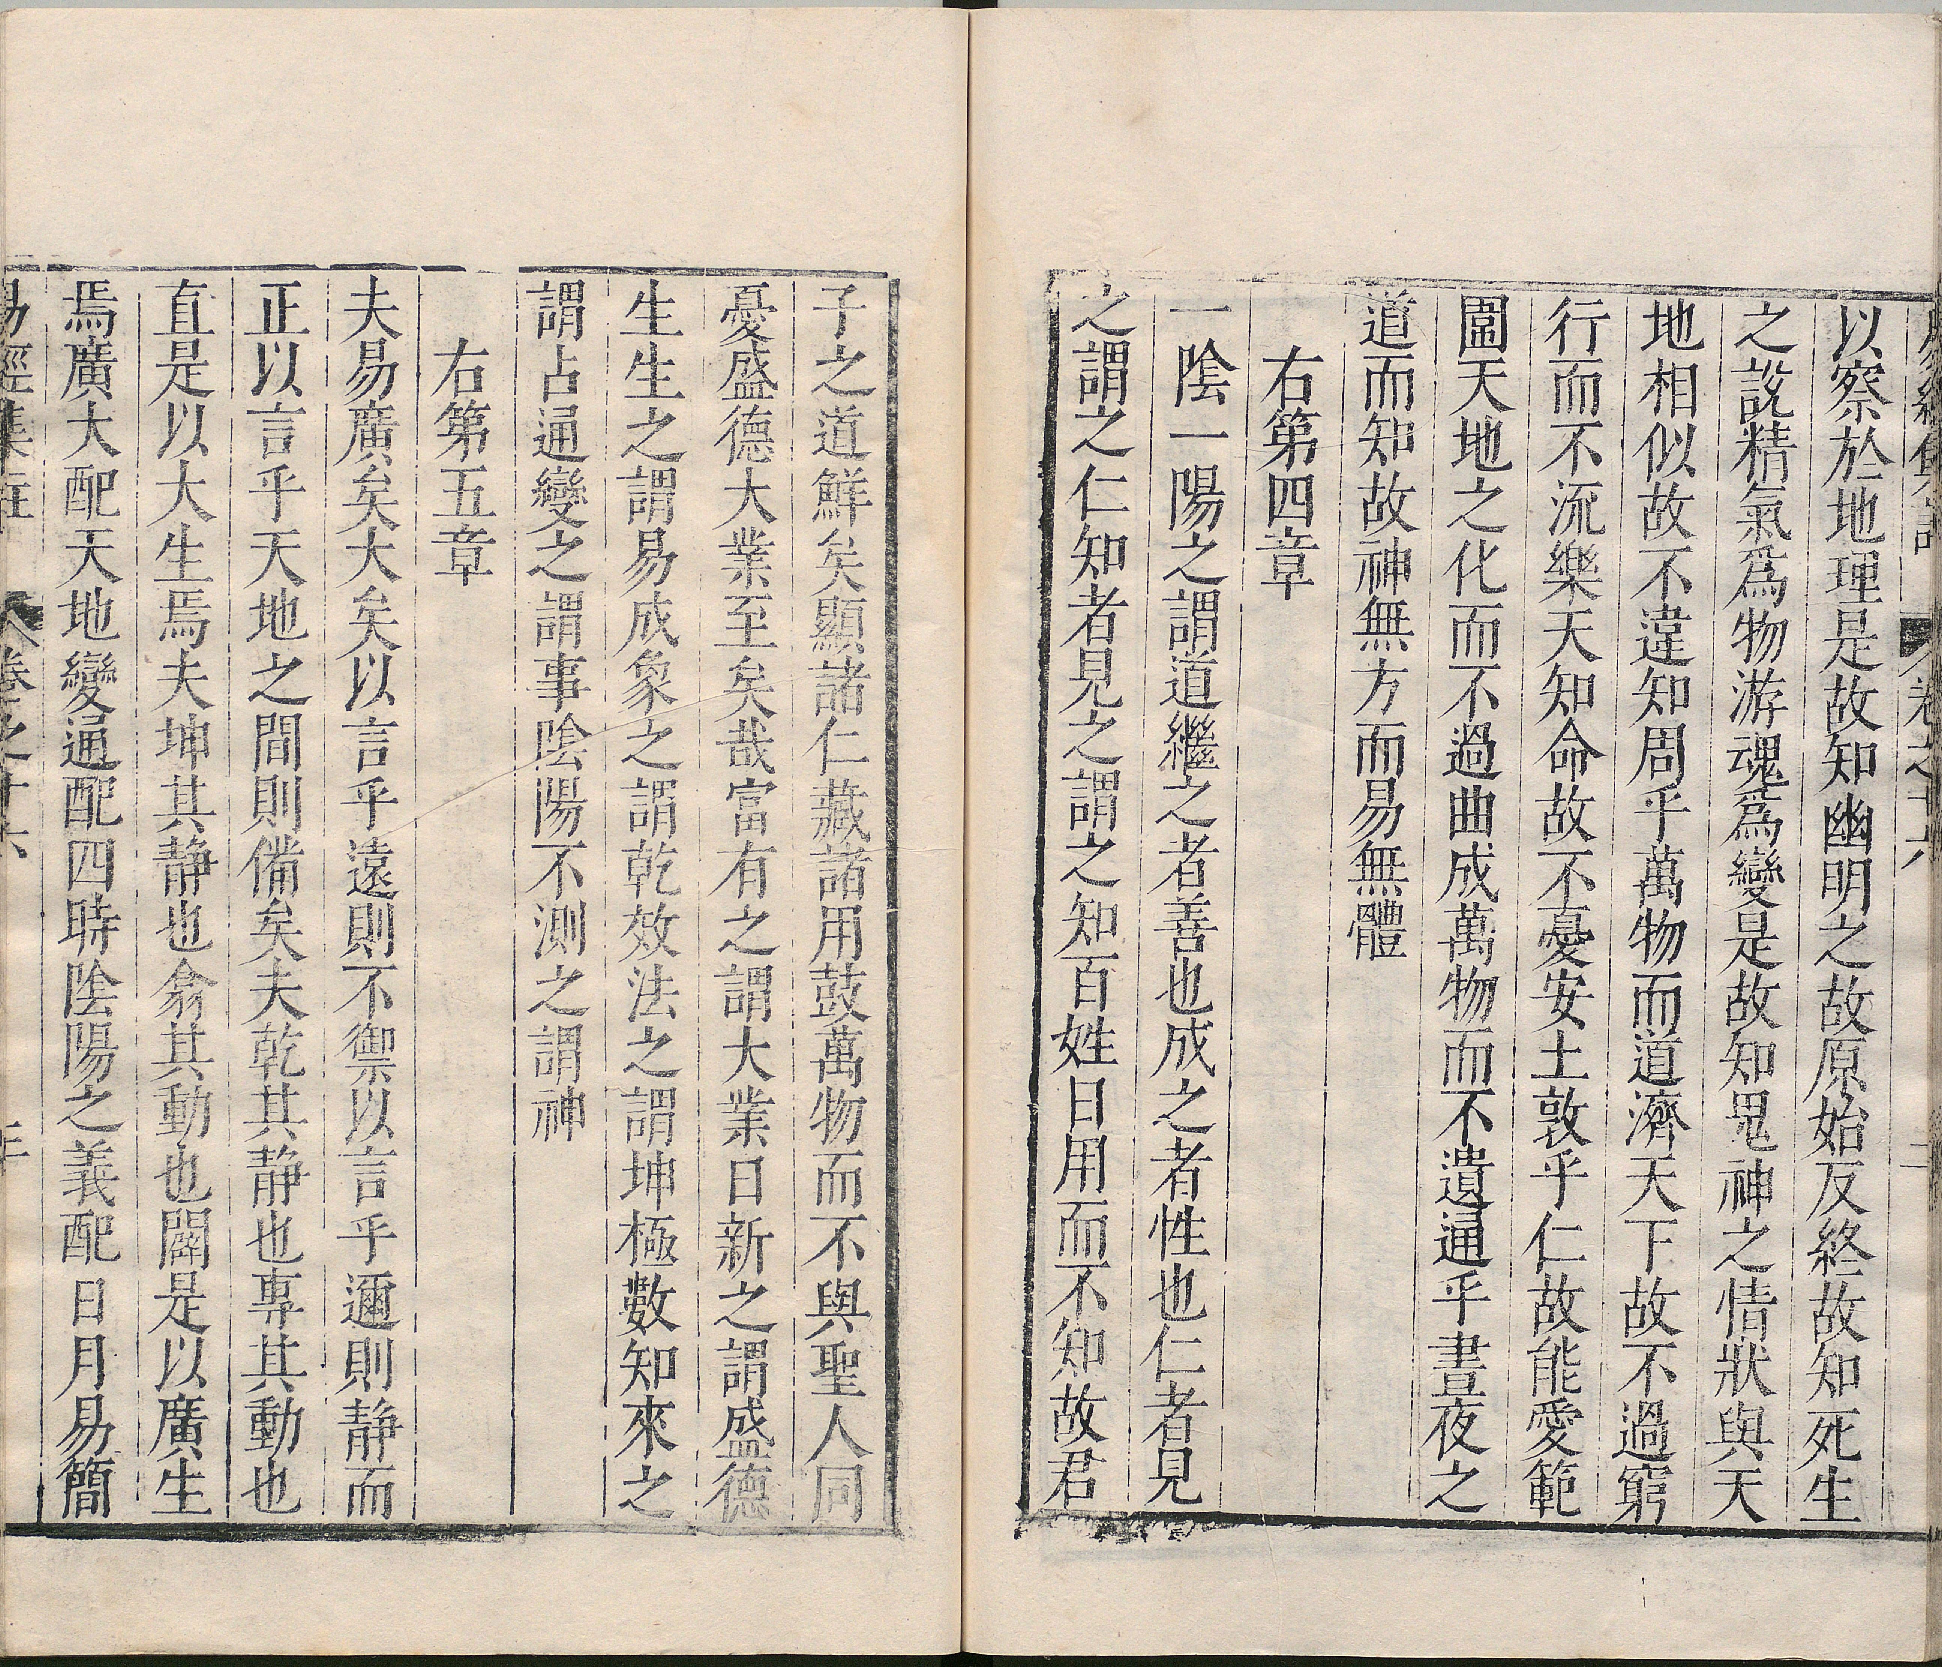 易經集註 卷之十六 二
以察於地理是故知幽明之故原始反終故知死生
之說精氣為物游魂為變是故知鬼神之情狀與天
地相似故不違知周乎萬物而道濟天下故不過窮
行而不流樂天知命故不憂安土敦乎仁故能愛範
圍天地之化而不過曲成萬物而不遺通乎晝夜之
道而知故神無方而易無體
右第四章
一陰一陽之謂道繼之者善也成之者性也仁者見
之謂之仁知者見之謂之知百姓日用而不知故君
子之道鮮矣顯諸仁藏諸用鼓萬物而不與聖人同
憂盛德大業至矣哉富有之謂大業日新之謂盛德
生生之謂易成象之謂乾效法之謂坤極數知來之
謂占通變之謂事陰陽不測之謂神
右第五章
夫易廣矣大矣以言乎遠則不禦以言乎邇則靜而
正以言乎天地之間則備矣夫乾其靜也專其動也
直是以大生焉夫坤其靜也翕其動也闢是以廣生
焉廣大配天地變通配四時陰陽之義配日月易簡
易經集註 卷之十六 三